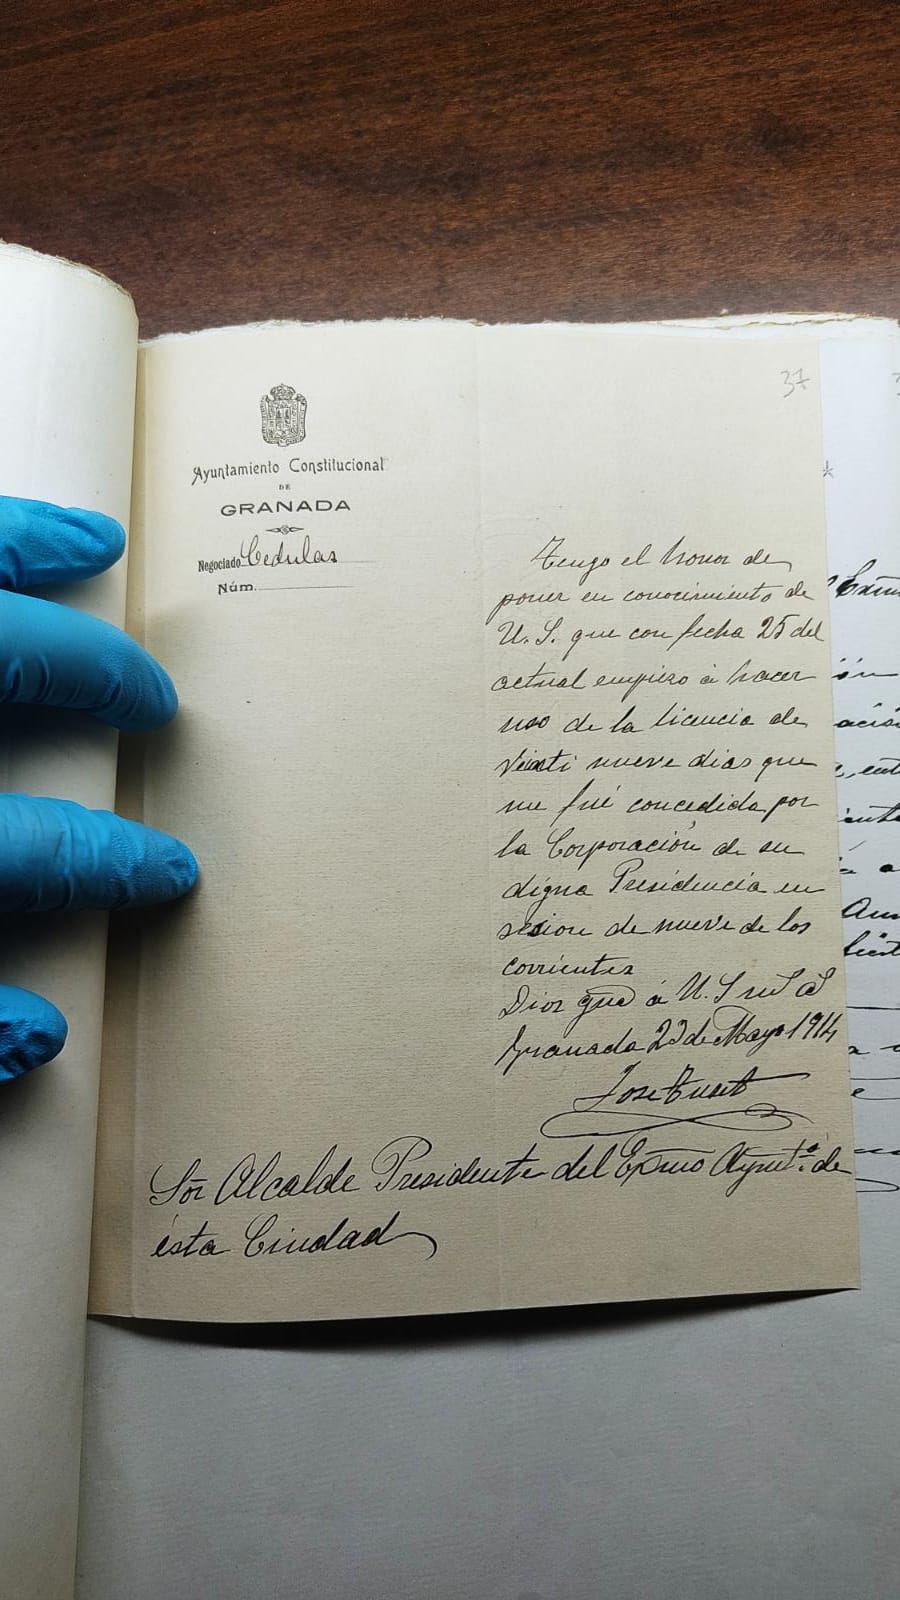 37
Ayuntamiento Constitucional
DE
GRANADA
Negociado Cedulas
Núm.
Tengo el honor de
poner en conocimiento de
U. S. que con fecha 25 del
actual empiezo á hacer
uso de la licencia de
Veinti nueve dias que
me fué concedida por
la Corporación de su
digna Presidencia en
sesion de nueve de los
corrientes
Dios gue á U. S ms as
Granada 23 de Mayo 1914
Jose Tuset
Sor Alcalde Presidente del Exmo Aymto. de
ésta Ciudad